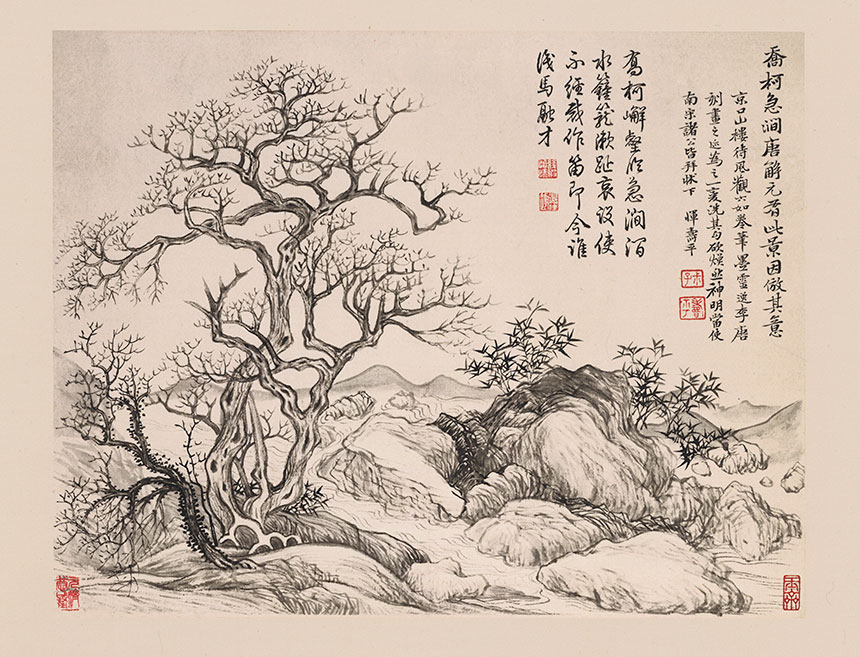 喬柯急澗唐解元有此景因倣其意
京口山樓待風觀六如卷筆墨靈逸李唐
刻畫之迹為之一變洗其勾斫煥然神明當使
南宗諸公皆拜牀下 惲壽平
高柯嶰壑急澗
水籦籠漱趾哀設使
不經裁作笛即今誰
識馬融才